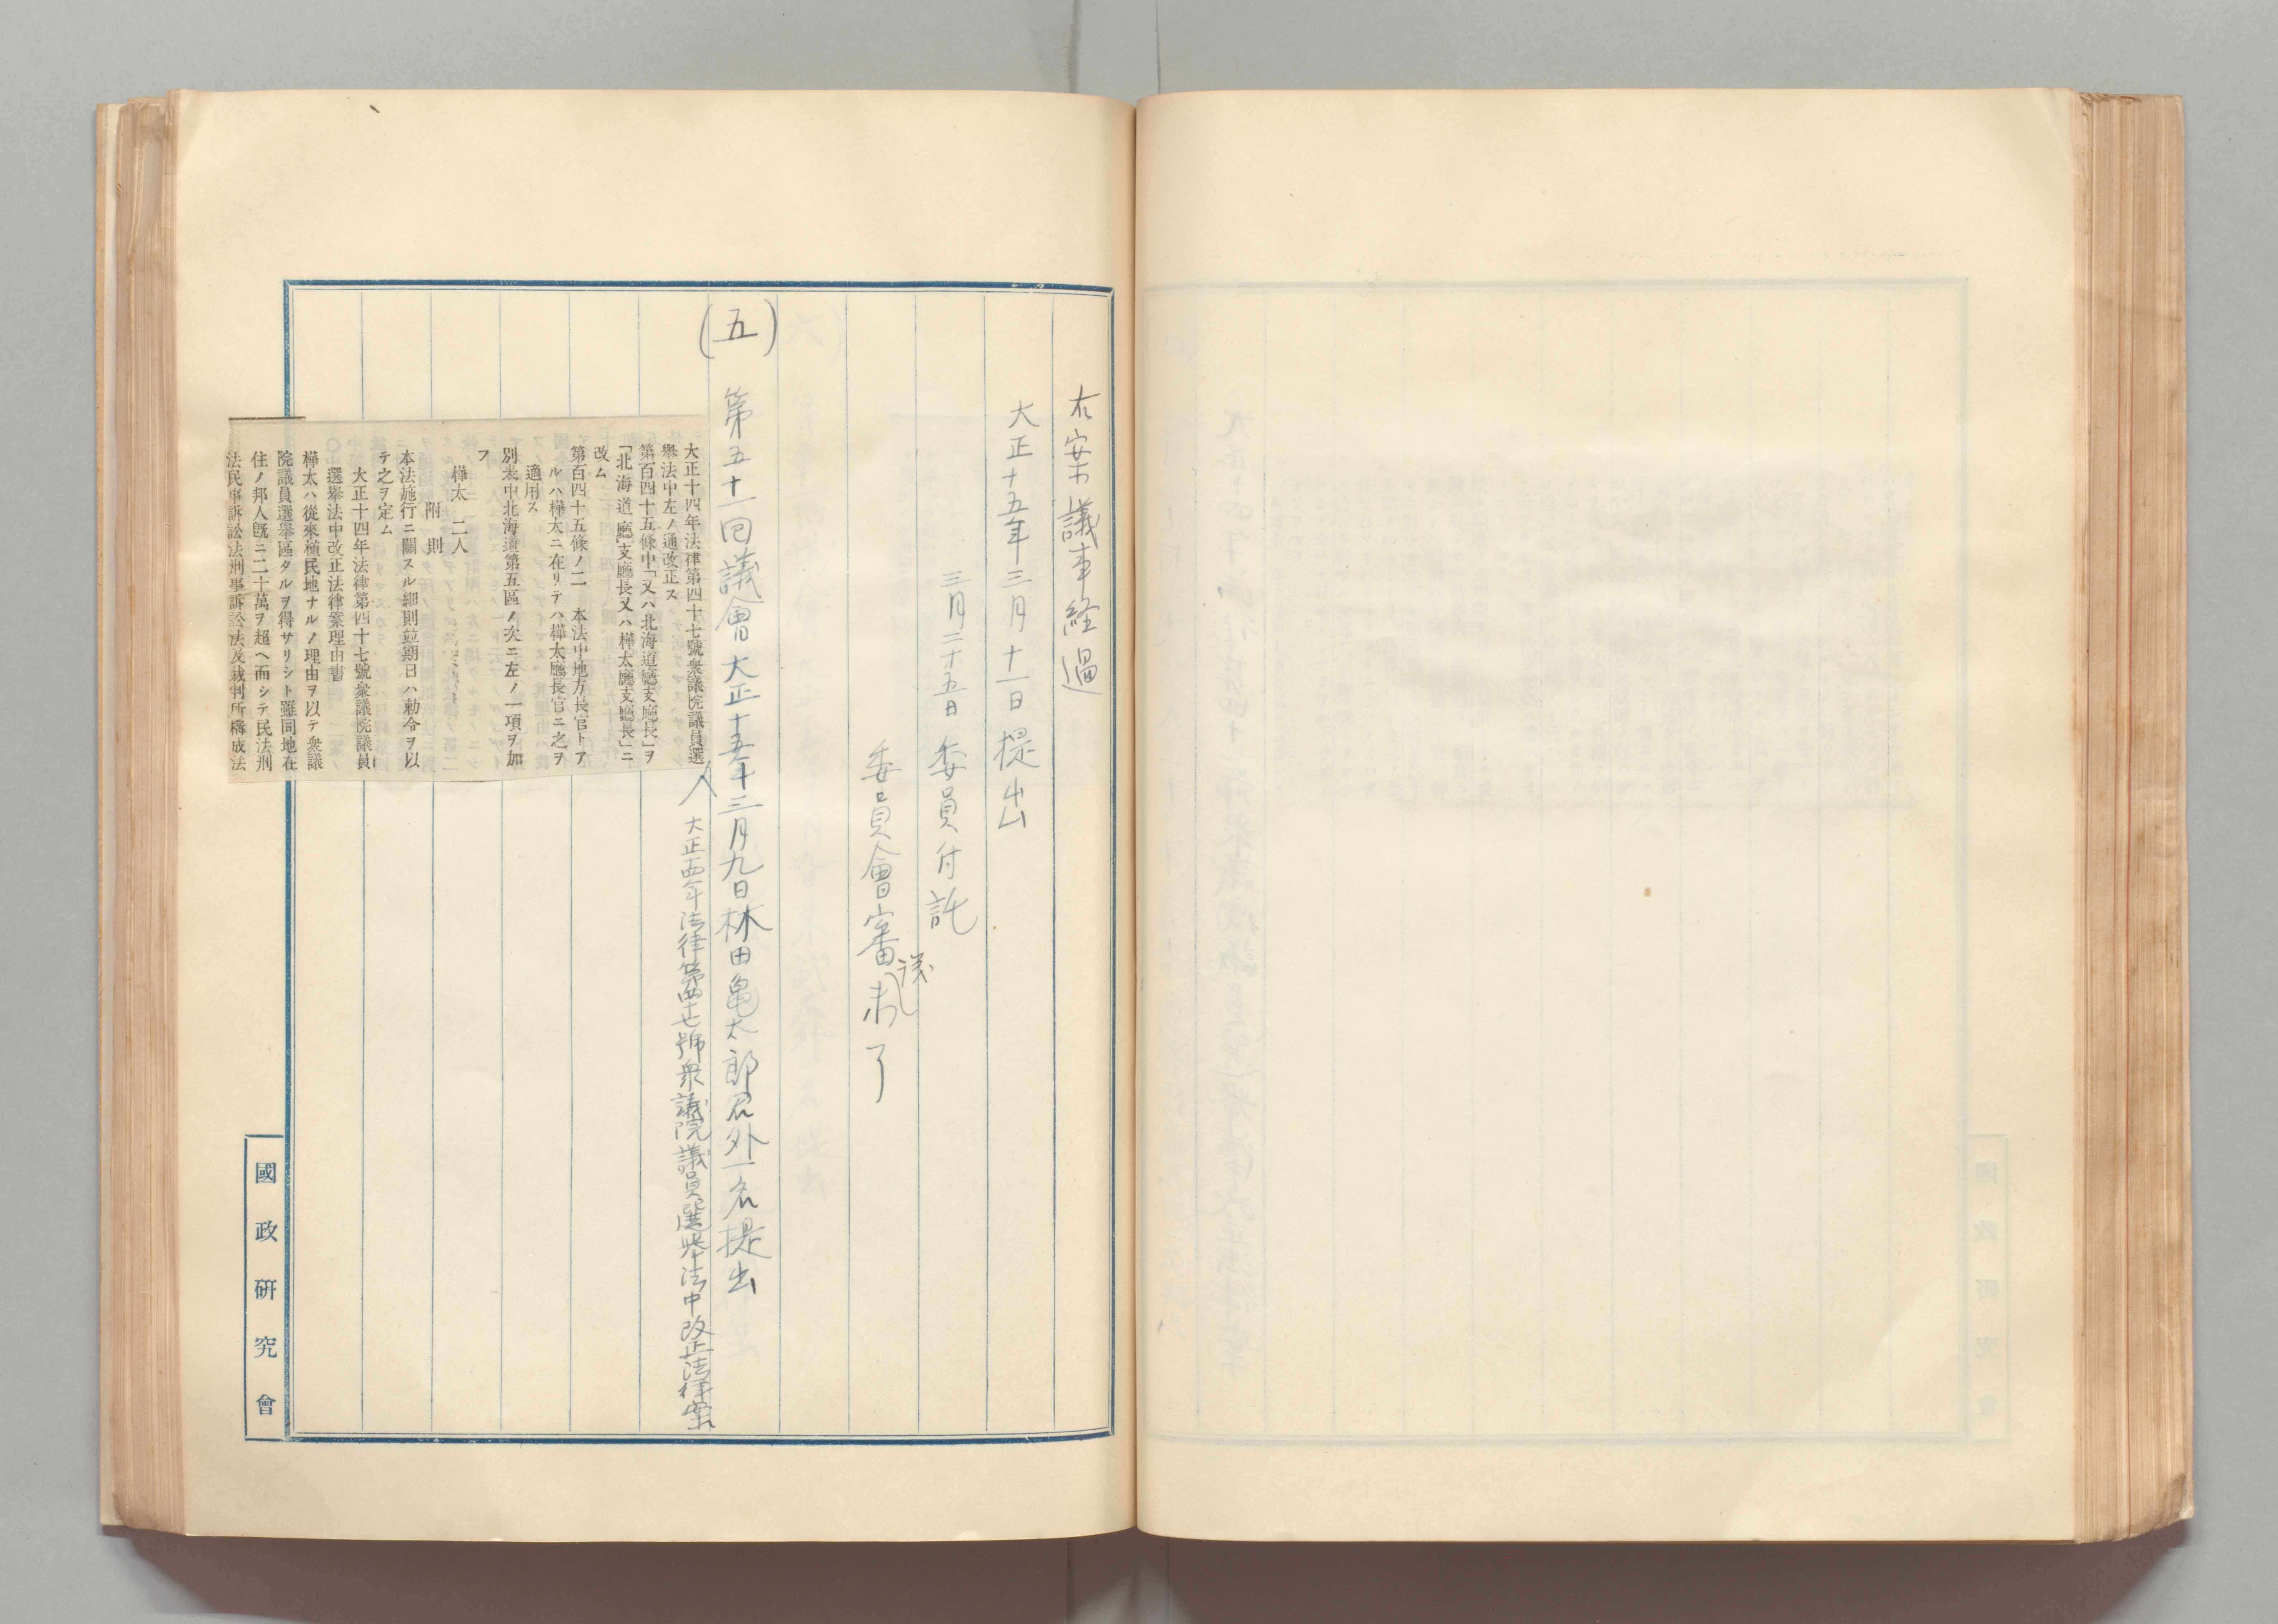 右案議事経過
大正十五年三月十一日提出
三月二十五日委員付託
委員會審議未了
(五)
第五十一回議會大正十五年三月九日林田亀太郎君外一名提出
大正十四年法律第四十七號衆議院議員選擧法中改正法律案
大正十四年法律第四十七號衆議院議員選
擧法中左ノ通改正ス
第百四十五條中「又ハ北海道廳支廳長」ヲ
「北海道廳支廳長又ハ樺太廳支廳長」ニ
改ム
第百四十五條ノ二 本法中地方長官トア
ルハ樺太ニ在リテハ樺太廳長官ニ之ヲ
適用ス
別表中北海道第五區ノ次ニ左ノ一項ヲ加
フ
樺太 二人
附則
本法施行ニ關スル細則竝期日ハ勅令ヲ以
テ之ヲ定ム
大正十四年法律第四十七號衆議院議員
選擧法中改正法律案理由書
樺太ハ從來植民地ナルノ理由ヲ以テ衆議
院議員選擧區タルヲ得サリシト雖同地在
住ノ邦人旣ニ二十萬ヲ超ヘ而シテ民法刑
法民事訴訟法刑事訴訟法及裁判所構成法
國政研究會